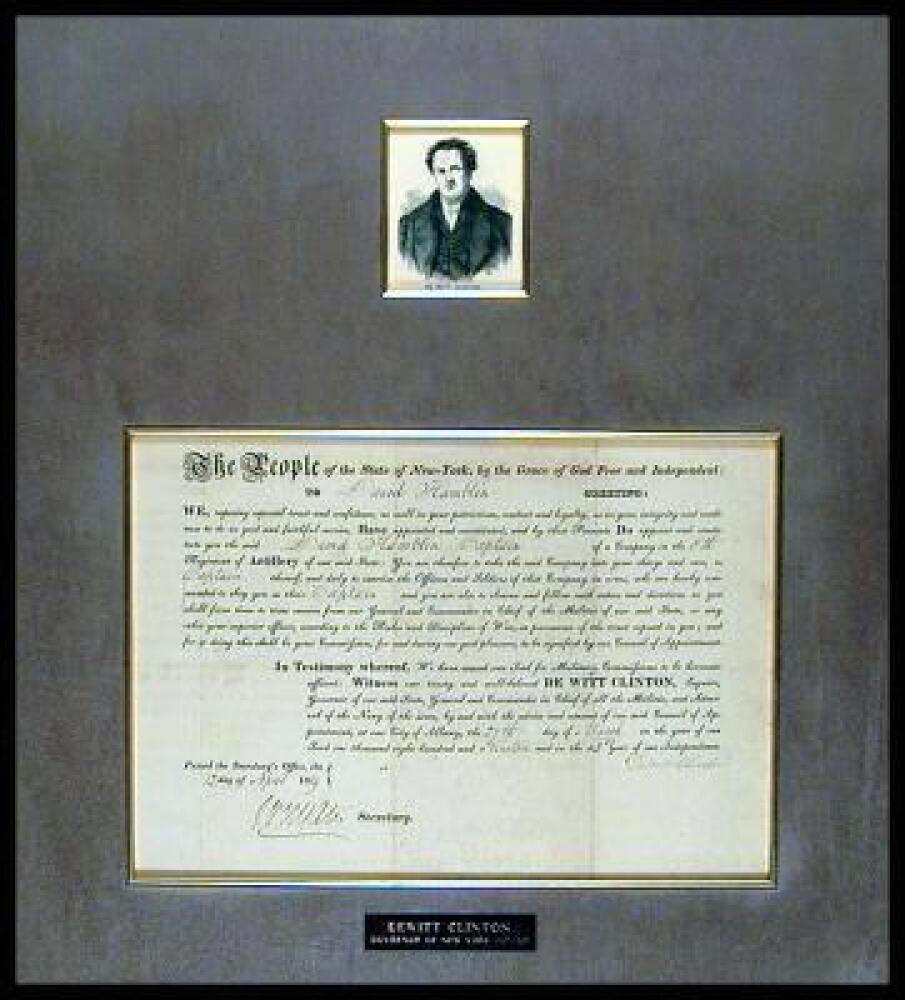 DE WITT CLINTON
The People of the State of New-York, by the Grace of God Free and Independent:
TO Hamblin GREETING:
WE, reposing especial trust and confidence, as well in your patriotism, conduct and loyalty, as in your integrity and readi-
ness to do us good and faithful service, Have appointed and constituted, and by these Presents Do appoint and constitute
you the said Hamblin Captain of a Company in the 8th
Regiment of Artillery of our said State. You are therefore to take the said Company into your charge and care, as
Captain thereof, and duly to exercise the Officers and Soldiers of that Company in arms, who are hereby com-
manded to obey you as their Captain and you are also to observe and follow such orders and directions as you
shall from time to time receive from our General and Commander in Chief of the Militia of our said State, or any
other your superior officer, according to the Rules and Discipline of War, in pursuance of the trust reposed in you; and
for so doing this shall be your Commission, for and during our good pleasure, to be signified by our Council of Appointment
In Testimony whereof, We have caused our Seal for Military Commissions to be hereunto
affixed. Witness our trusty and well-beloved DE WITT CLINTON, Esquire,
Governor of our said State, General and Commander in Chief of all the Militia, and Admi-
ral of the Navy of the same, by and with the advice and consent of our said Council of Ap-
pointment, at our City of Albany, the 27th day of March in the year of our
Lord one thousand eight hundred and and in the 43 Year of our Independence
Passed the Secretary's Office, the
12 day of April 1819
Secretary.
DEWITT CLINTON
GOVERNOR OF NEW YORK